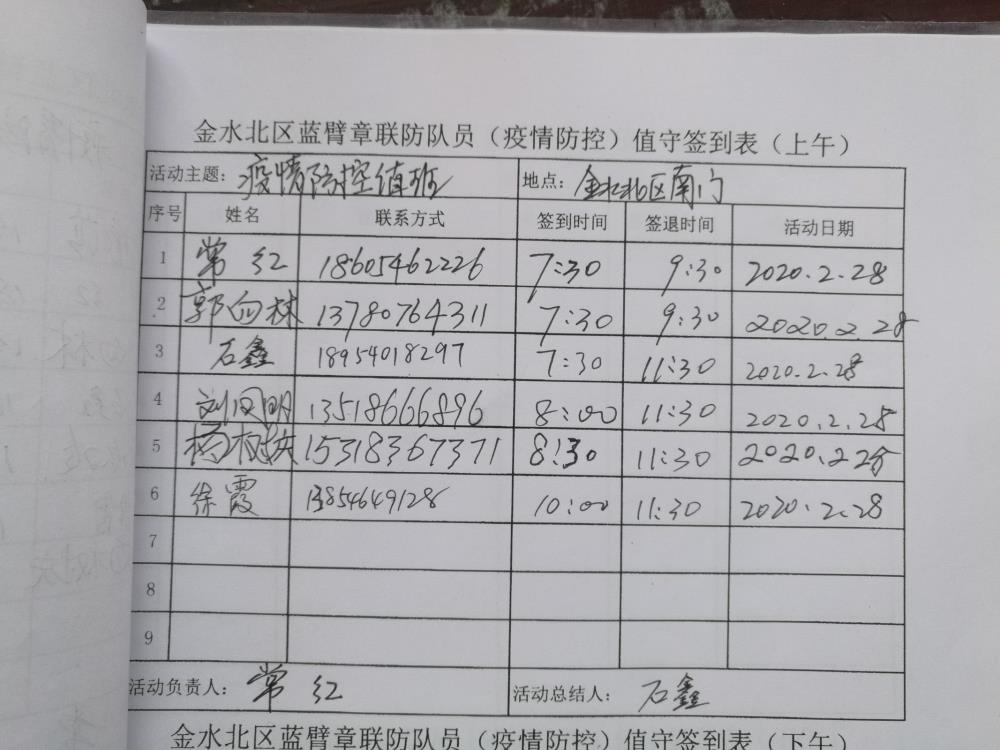 金水北区蓝臂章联防队员（疫情防控）值守签到表（上午）
活动主题：疫情防控值班 地点：金水北区南门
序号 姓名 联系方式 签到时间 签退时间 活动日期
1 常红 18605462226 7:30 9:30 2020.2.28
2 郭向林 13780764311 7:30 9:30 2020.2.28
3 石鑫 18954018297 7:30 11:30 2020.2.28
4 刘凤明 13518666896 8:00 11:30 2020.2.28
5 杨树 15318367371 8:30 11:30 2020.2.28
6 徐霞 13854649128 10:00 11:30 2020.2.28
7
8
9
活动负责人：常红 活动总结人：石鑫
金水北区蓝臂章联防队员（疫情防控）值守签到表（下午）